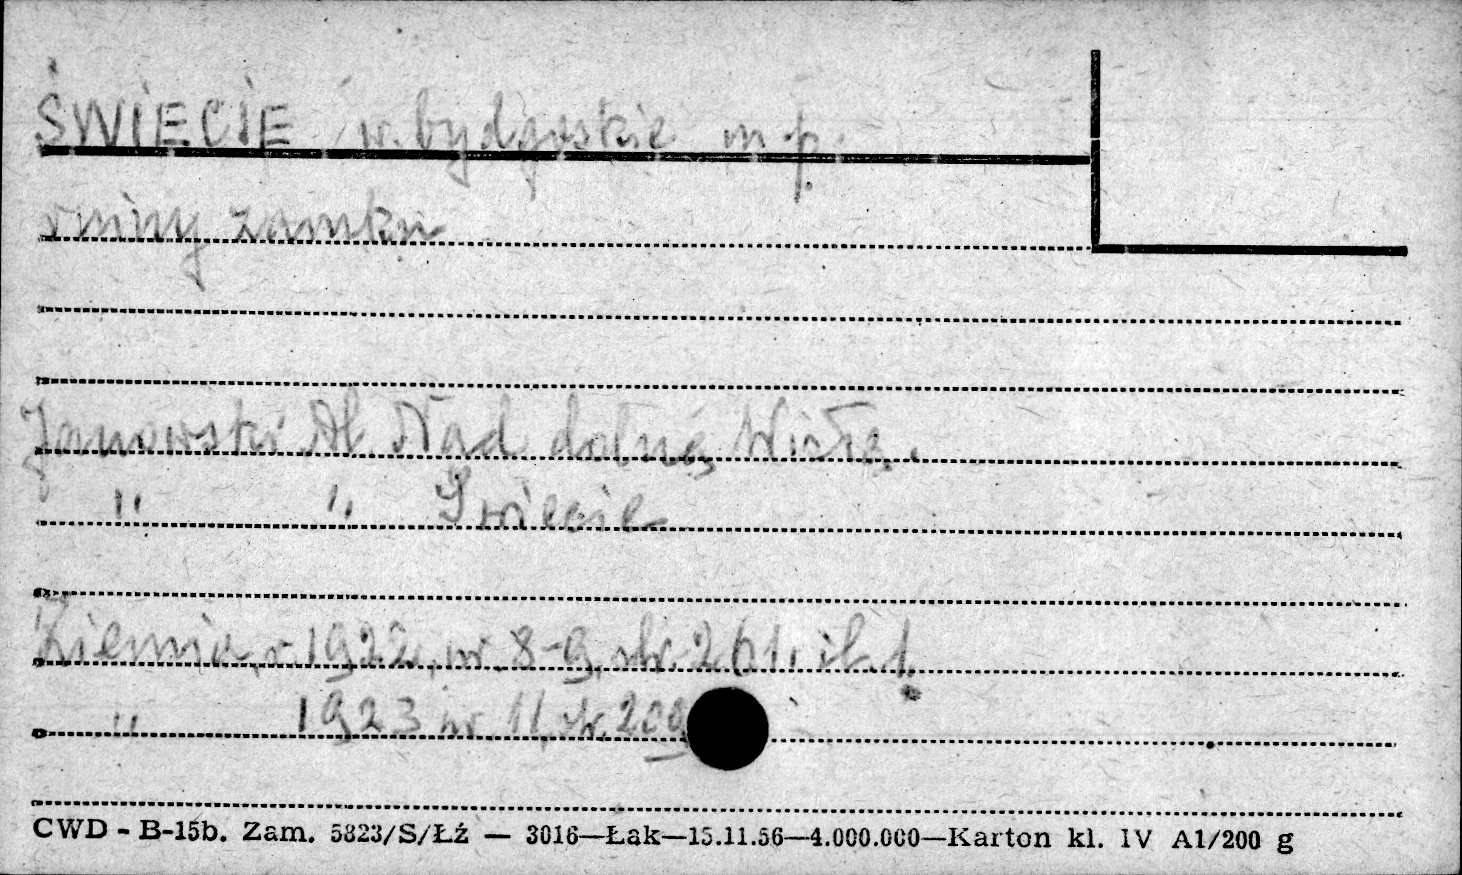 ŚWIECIE w. bydgoskie m p.
ruiny zamku
Janowski Al. Nad dolną Wisłą.
" " Świecie
Ziemia, r. 1922, nr. 8-9, str. 261. il. 1.
" 1923 nr 11, str. 209
CWD - B-15b. Zam. 5823/S/Łź — 3016—Łak—15.11.56—4.000.000—Karton kl. IV A1/200 g